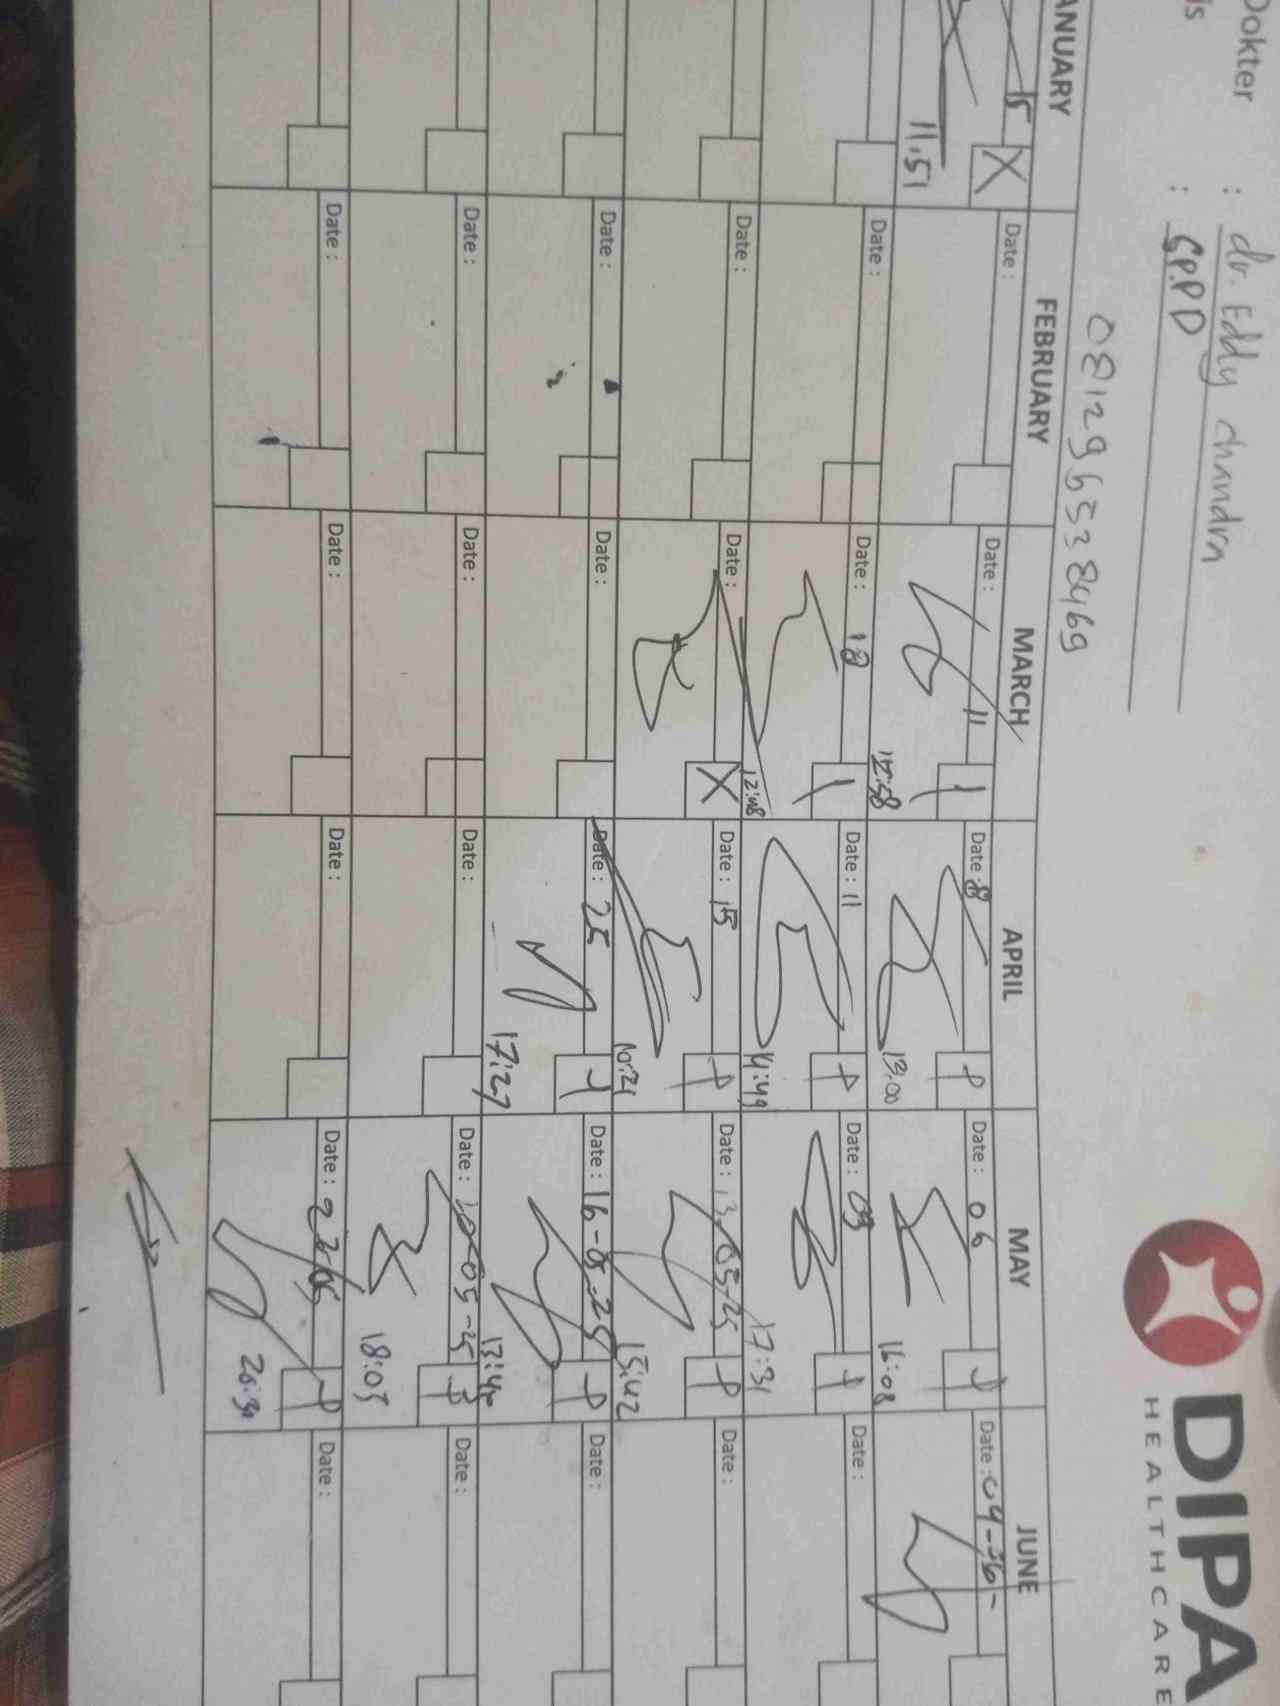 DIPA
HEALTHCARE
Dokter : dr. Eddy chandra
is : SP.PD
081296538469
ANUARY FEBRUARY MARCH APRIL MAY JUNE
15 X Date : Date : 11 Date : 8 Date : 06 Date : 04-06-
11.51 12:58 13:00 16:08
Date : Date : 18 Date : 11 Date : 09 Date :
12:48 17:31
Date : Date : X Date : 15 Date : 13-05-25 Date :
15:42
Date : Date : Date : 25 Date : 16-05-25 Date :
17:27
Date : Date : Date : Date : 20-05-25 Date :
18:03
Date : Date : Date : Date : Date :